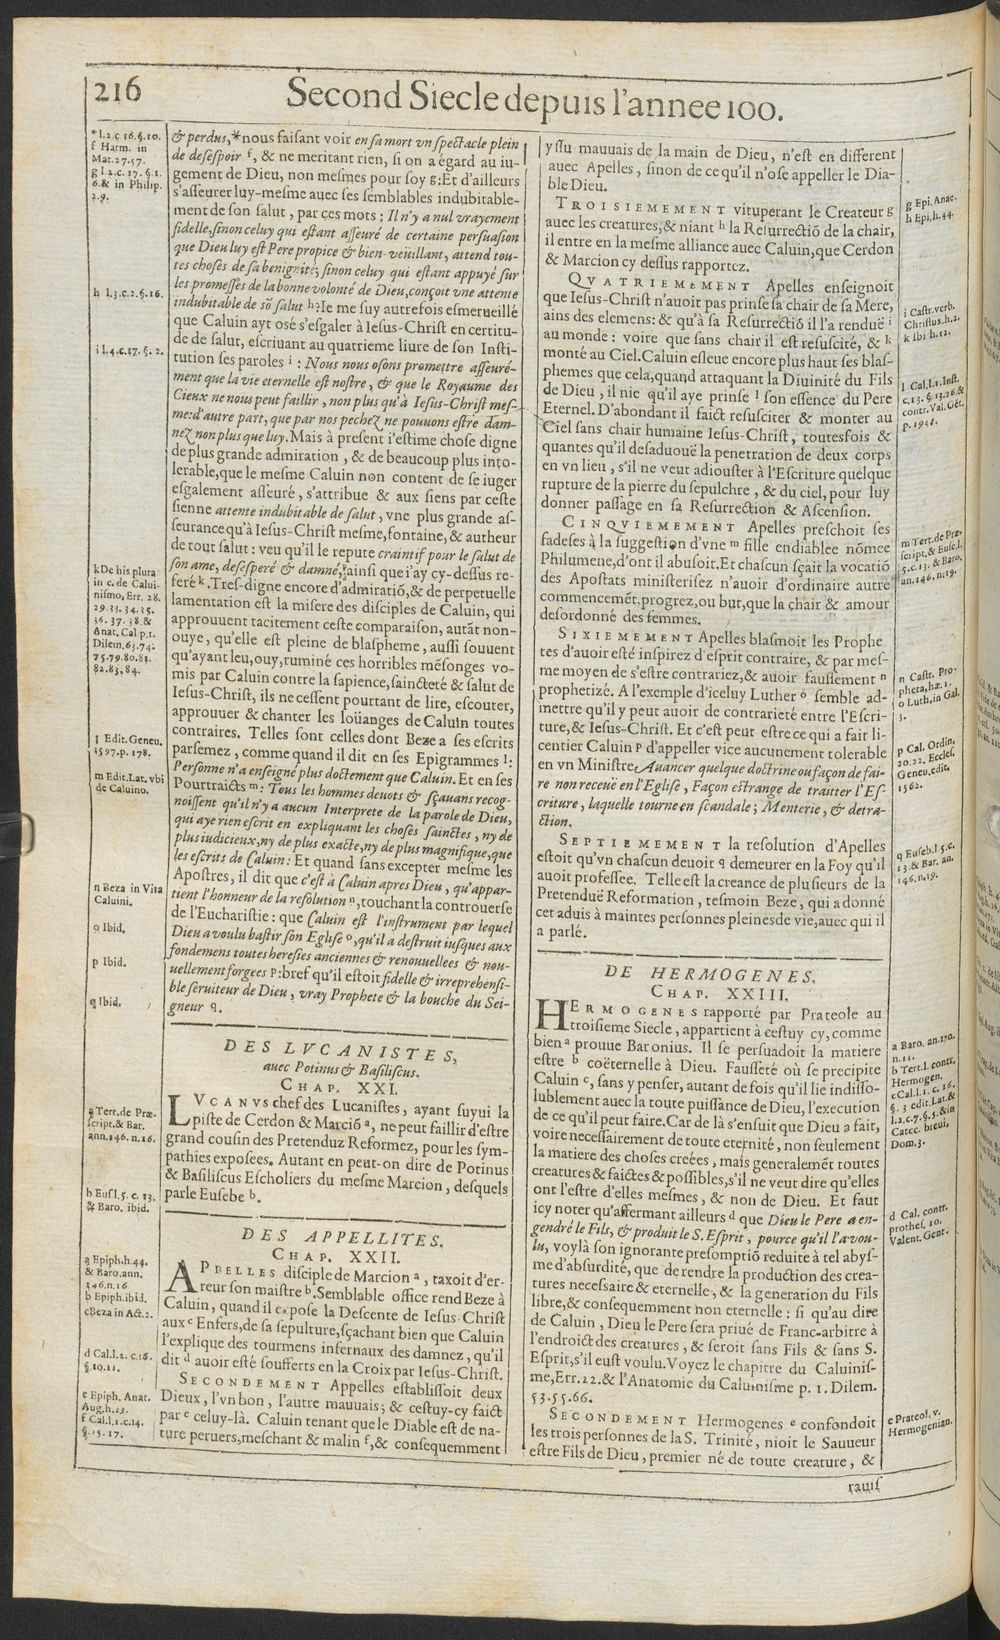 216
Second Siecle depuis l'annee 100.
* l.2.c 16.§.10.
f Harm. in
Mat.27.57.
g l.2.c.17.§.1.
6.& in Philip.
2.9.
h l.3.c.2.§.16.
i l.4.c.17.§.2.
k De his plura
in c. de Calui-
nismo, Err. 28.
29.33.34.35.
36.37.38.&
Anat. Cal.p.1.
Dilem.63.74.
75.79.80.81.
82.83.84.
l Edit.Geneu.
1597.p.178.
m Edit.Lat. vbi
de Caluino.
n Beza in Vita
Caluini.
o Ibid.
p Ibid.
q Ibid.
& perdus,* nous faisant voir en sa mort vn spectacle plein
de desespoir f, & ne meritant rien, si on a égard au iu-
gement de Dieu, non mesmes pour soy g: Et d'ailleurs
s'asseurer luy-mesme auec ses semblables indubitable-
ment de son salut, par ces mots; Il n'y a nul vrayement
fidelle, sinon celuy qui estant asseuré de certaine persuasion
que Dieu luy est Pere propice & bien-veüillant, attend tou-
tes choses de sa benignité; sinon celuy qui estant appuyé sur
les promesses de la bonne volonté de Dieu, conçoit vne attente
indubitable de sõ salut h? Ie me suy autrefois esmerueillé
que Caluin ayt osé s'esgaler à Iesus-Christ en certitu-
de de salut, escriuant au quatrieme liure de son Insti-
tution ses paroles i: Nous nous osons promettre asseuré-
ment que la vie eternelle est nostre, & que le Royaume des
Cieux ne nous peut faillir, non plus qu'à Iesus-Christ mes-
me: d'autre part, que par nos pechez ne pouuons estre dam-
nez non plus que luy. Mais à present i'estime chose digne
de plus grande admiration, & de beaucoup plus into-
lerable, que le mesme Caluin non content de se iuger
esgalement asseuré, s'attribue & aux siens par ceste
sienne attente indubitable de salut, vne plus grande as-
seurance qu'à Iesus-Christ mesme, fontaine, & autheur
de tout salut: veu qu'il le repute craintif pour le salut de
son ame, desesperé & damné, ainsi que i'ay cy-dessus re-
feré k. Tres-digne encore d'admiratiõ, & de perpetuelle
lamentation est la misere des disciples de Caluin, qui
approuuent tacitement ceste comparaison, autãt non-
ouye, qu'elle est pleine de blaspheme, aussi souuent
qu'ayant leu, ouy, ruminé ces horribles mésonges vo-
mis par Caluin contre la sapience, saincteté & salut de
Iesus-Christ, ils ne cessent pourtant de lire, escouter,
approuuer & chanter les loüanges de Caluin toutes
contraires. Telles sont celles dont Beze a ses escrits
parsemez, comme quand il dit en ses Epigrammes l:
Personne n'a enseigné plus doctement que Caluin. Et en ses
Pourtraicts m: Tous les hommes deuots & sçauans recog-
noissent qu'il n'y a aucun Interprete de la parole de Dieu,
qui aye rien escrit en expliquant les choses sainctes, ny de
plus iudicieux, ny de plus exacte, ny de plus magnifique, que
les escrits de Caluin: Et quand sans excepter mesme les
Apostres, il dit que c'est à Caluin apres Dieu, qu'appar-
tient l'honneur de la resolution n, touchant la controuerse
de l'Eucharistie: que Caluin est l'instrument par lequel
Dieu a voulu bastir son Eglise o, qu'il a destruit iusques aux
fondemens toutes heresies anciennes & renouuellees & nou-
uellement forgees p: bref qu'il estoit fidelle & irreprehensi-
ble seruiteur de Dieu, vray Prophete & la bouche du Sei-
gneur q.
DES LVCANISTES,
auec Potinus & Basiliscus.
CHAP. XXI.
a Tert.de Præ-
script.& Bar.
ann.146.n.16.
b Eus.l.5.c.13.
& Baro. ibid.
LVCANVS chef des Lucanistes, ayant suyui la
piste de Cerdon & Marciõ a, ne peut faillir d'estre
grand cousin des Pretenduz Reformez, pour les sym-
pathies exposees. Autant en peut-on dire de Potinus
& Basiliscus Escholiers du mesme Marcion, desquels
parle Eusebe b.
DES APPELLITES.
CHAP. XXII.
a Epiph.h.44.
& Baro.ann.
146.n.16
b Epiph.ibid.
c Beza in Act.2.
d Cal.l.2.c.16.
§.10.11.
e Epiph. Anat.
Aug.h.23.
f Cal.l.1.c.14.
§.15.17.
APELLES disciple de Marcion a, taxoit d'er-
reur son maistre b. Semblable office rend Beze à
Caluin, quand il expose la Descente de Iesus-Christ
aux c Enfers, de sa sepulture, sçachant bien que Caluin
l'explique des tourmens infernaux des damnez, qu'il
dit d auoir esté soufferts en la Croix par Iesus-Christ.
SECONDEMENT Appelles establissoit deux
Dieux, l'vn bon, l'autre mauuais; & cestuy-cy faict
par e celuy-là. Caluin tenant que le Diable est de na-
ture peruers, meschant & malin f, & consequemment
yssu mauuais de la main de Dieu, n'est en different
auec Apelles, sinon de ce qu'il n'ose appeller le Dia-
ble Dieu.
TROISIEMEMENT vituperant le Createur g
auec les creatures, & niant h la Resurrectiõ de la chair,
il entre en la mesme alliance auec Caluin, que Cerdon
& Marcion cy dessus rapportez.
QVATRIEMEMENT Apelles enseignoit
que Iesus-Christ n'auoit pas prinse sa chair de sa Mere,
ains des elemens: & qu'à sa Resurrectiõ il l'a renduë i
au monde: voire que sans chair il est resuscité, & k
monté au Ciel. Caluin esleue encore plus haut ses blas-
phemes que cela, quand attaquant la Diuinité du Fils
de Dieu, il nie qu'il aye prinse l son essence du Pere
Eternel. D'abondant il faict resusciter & monter au
Ciel sans chair humaine Iesus-Christ, toutesfois &
quantes qu'il desaduouë la penetration de deux corps
en vn lieu, s'il ne veut adiouster à l'Escriture quelque
rupture de la pierre du sepulchre, & du ciel, pour luy
donner passage en sa Resurrection & Ascension.
CINQVIEMEMENT Apelles preschoit ses
fadeses à la suggestion d'vne m fille endiablee nõmee
Philumene, d'ont il abusoit. Et chascun sçait la vocatiõ
des Apostats ministerisez n'auoir d'ordinaire autre
commencemẽt, progrez, ou but, que la chair & amour
desordonné des femmes.
SIXIEMEMENT Apelles blasmoit les Prophe
tes d'auoir esté inspirez d'esprit contraire, & par mes-
me moyen de s'estre contrariez, & auoir faussement n
prophetizé. A l'exemple d'iceluy Luther o semble ad-
mettre qu'il y peut auoir de contrarieté entre l'Escri-
ture, & Iesus-Christ. Et c'est peut estre ce qui a fait li-
centier Caluin p d'appeller vice aucunement tolerable
en vn Ministre, Auancer quelque doctrine ou façon de fai-
re non receuë en l'Eglise, Façon estrange de traitter l'Es-
criture, laquelle tourne en scandale; Menterie, & detra-
ction.
SEPTIEMEMENT la resolution d'Apelles
estoit qu'vn chascun deuoit q demeurer en la Foy qu'il
auoit professee. Telle est la creance de plusieurs de la
Pretenduë Reformation, tesmoin Beze, qui a donné
cet aduis à maintes personnes pleines de vie, auec qui il
a parlé.
g Epi. Anac.
h Epi.h.44.
i Castr.verb.
Christus.h.2.
k Ibi h.12.
l Cal.l.1.Inst.
c.13.§.13.26.&
contr.Val.Gét.
m Tert.de Præ-
script.& Euse.l.
5.c.13. & Baro.
an.146.n.19.
n Castr. Pro-
pheta, hæ. 1.
o Luth.in Gal.
3.
p Cal. Ordin.
20.22. Eccles.
Geneu.edit.
1562.
q Euseb.l 5.c.
13.& Bar. an.
146.n.19.
DE HERMOGENES.
CHAP. XXIII.
HERMOGENES rapporté par Prateole au
troisieme Siecle, appartient à cestuy cy, comme
bien a prouue Baronius. Il se persuadoit la matiere
estre b coëternelle à Dieu. Fausseté où se precipite
Caluin c, sans y penser, autant de fois qu'il lie indisso-
lublement auec la toute puissance de Dieu, l'execution
de ce qu'il peut faire. Car de là s'ensuit que Dieu a fait,
voire necessairement de toute eternité, non seulement
la matiere des choses creées, mais generalemẽt toutes
creatures & faictes & possibles, s'il ne veut dire qu'elles
ont l'estre d'elles mesmes, & non de Dieu. Et faut
icy noter qu'affermant ailleurs d que Dieu le Pere a en-
gendré le Fils, & produit le S. Esprit, pource qu'il l'a vou-
lu, voylà son ignorante presomptiõ reduite à tel abys-
me d'absurdité, que de rendre la production des crea-
tures necessaire & eternelle, & la generation du Fils
libre, & consequemment non eternelle: si qu'au dire
de Caluin, Dieu le Pere sera priué de Franc-arbitre à
l'endroict des creatures, & seroit sans Fils & sans S.
Esprit, s'il eust voulu. Voyez le chapitre du Caluinis-
me, Err.22.& l'Anatomie du Caluinisme p. 1. Dilem.
53.55.66.
SECONDEMENT Hermogenes e confondoit
les trois personnes de la S. Trinité, nioit le Sauueur
estre Fils de Dieu, premier né de toute creature, &
a Baro. an.170.
n.11.
b Tert.l. contr.
Hermogen.
c Cal.l.1.c.16.
§.3 edit.Lat.&
l.2.c.7.§.5.&in
Catec. breui,
Dom.3.
d Cal. contr.
prothes. 10.
Valent.Gent.
e Prateol. v.
Hermogeniani.
rauis